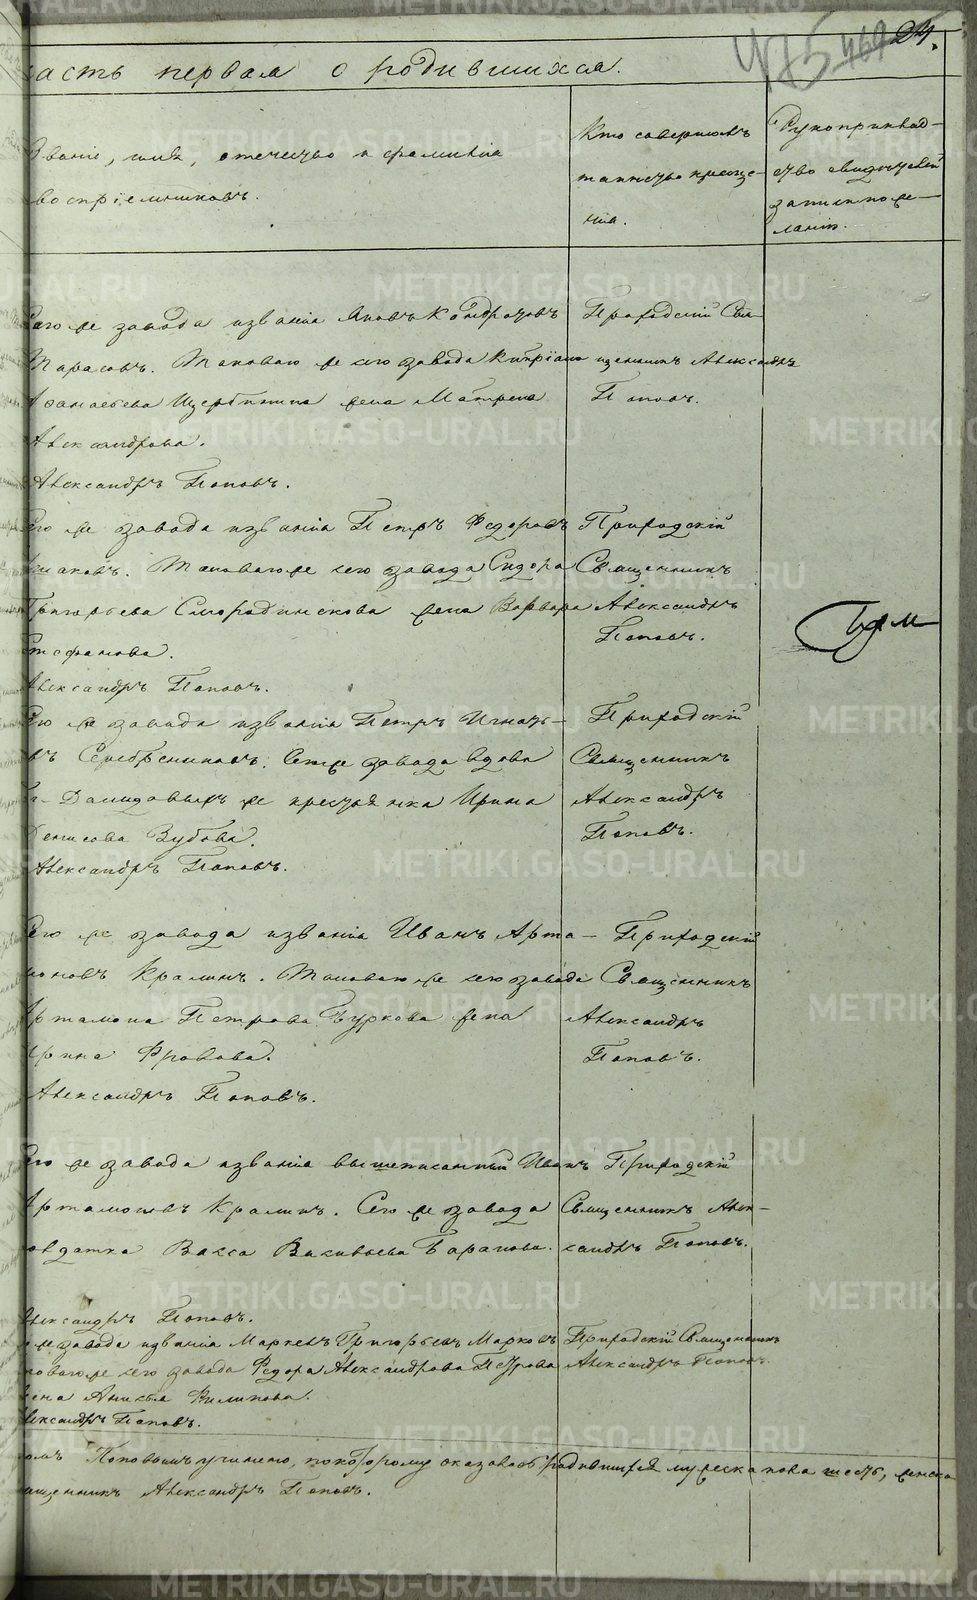 475 469 24.
часть первая о родившихся.
Званіе, имя, отечество и фамилія
воспріемниковъ.
Кто совершалъ
таинство креще-
нія.
Рукоприклад-
ство свидѣтелей
записи по же-
ланію.
Сего же завода званія Яковъ Кондратовъ
Тарасовъ. Таковаго же сего завода Кипріяна
Афанасьева Щербинина жена Матрена
Александрова.
Александръ Поповъ.
Приходскій Свя-
щенникъ Александръ
Поповъ.
Сего же завода званія Петръ Федоровъ
Таковаго же сего завода Сидора
Григорьева Смородинскова жена Варвара
Стефанова.
Александръ Поповъ.
Приходскій
Священникъ
Александръ
Поповъ.
Сего же завода званія Петръ Игнать-
въ Серебрениковъ. Сего же завода вдова
Демидовыхъ же крестьянка Ирина
Денисова Зубова.
Александръ Поповъ.
Приходскій
Священникъ
Александръ
Поповъ.
Сего же завода званія Иванъ Арта-
моновъ Кралинъ. Таковаго же сего завода
Артамона Петрова Буркова жена
Ирина Фролова.
Александръ Поповъ.
Приходскій
Священникъ
Александръ
Поповъ.
Сего же завода званія вышеписанный Иванъ
Артамоновъ Кралинъ. Сего же завода
солдатка Васса Васильева Баранова.
Александръ Поповъ.
Приходскій
Священникъ Алек-
сандръ Поповъ.
Сего же завода званія Маркелъ Григорьевъ Марковъ
Таковаго же сего завода Федора Александрова Петрова
жена Анисья Филипова.
Александръ Поповъ.
Приходскій Священникъ
Александръ Поповъ.
Поповымъ учинено, по которому оказалось родившихся мужеска пола шесть, женска
Священникъ Александръ Поповъ.
METRIKI.GASO-URAL.RU